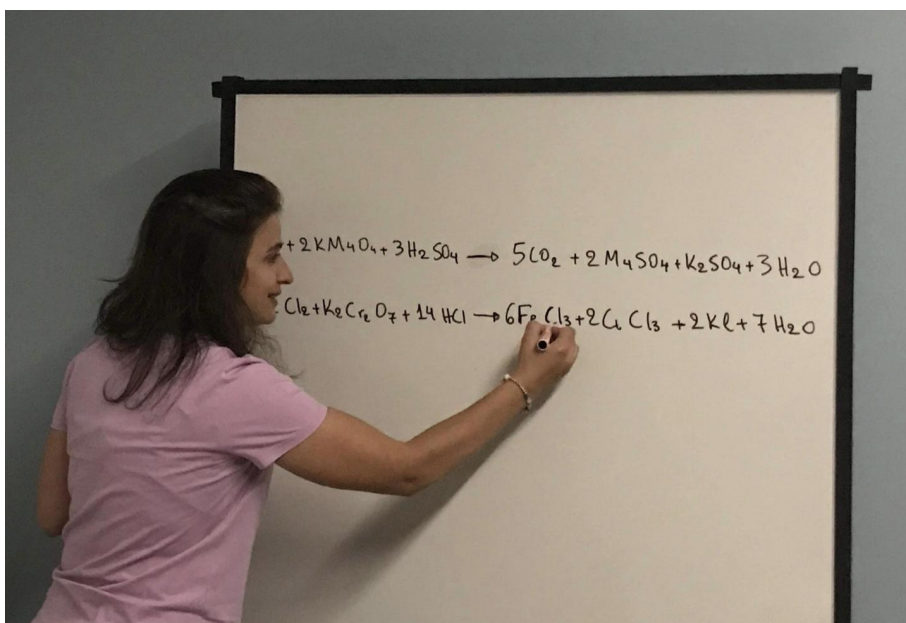 + 2KM4O4 + 3H2SO4 → 5CO2 + 2M4SO4 + K2SO4 + 3H2O
Cl2 + K2Cr2O7 + 14HCl → 6FeCl3 + 2CrCl3 + 2KCl + 7H2O